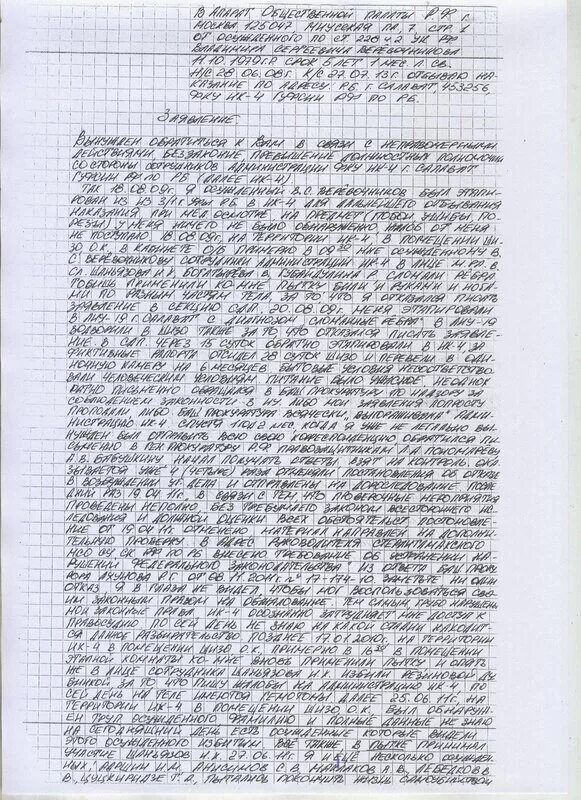 В Апарат Общественной палаты РФ г.
Москва 125047 Миусская пл. 7, стр 1
от осужденного по ст 228 ч.2 УК РФ
Владимира Сергеевича Верёвочникова
11.10.1979 г.р срок 5 лет 1 мес. л. св.
Н/С 28.06.08г. К/С 27.07.13г. отбываю на-
казание по адресу РБ. г. Салават, 453256
ФКУ ИК-4 ГУФСИН РФ по РБ.
Заявление
Вынужден обратиться к Вам в связи с неправомерными
действиями, беззаконие, превышение должностных полномочий
со стороны сотрудников администрации ФКУ ИК-4 г. Салават
ГУФСИН РФ по РБ (далее ИК-4).
Так 18.08.09г. я осужденный В.С. Верёвочников был этапи-
рован из ИЗ 3/1 г. Уфы РБ. в ИК-4 для дальнейшего отбывания
наказания, при мед осмотре на предмет (побои, ушибы по-
резы) у меня ничего не было обнаружено, жалоб от меня
не поступало 18.08.09г. на территории ИК-4. в помещении ши-
зо о.к. в кабинете примерно в 09:30 мне осужденному В.
С. Верёвочникову сотрудники администрации ИК-4 в лице
Шаньязова И.Х. Богатырёва В. Губайдулина Р. сломали рёбра
применили ко мне пытку били и руками и нога-
ми по разным частям тела, за то что я отказался писать
заявление в секцию СДП. 20.08.09г. меня этапировали
в ЛИУ-19 г. Салават с диагнозом "сломанные рёбра". в ЛИУ-19
водворили в шизо также за то, что отказался писать заявле-
ние в СДП. Через 15 суток обратно этапировали в ИК-4 за
фиктивные рапорта отсидел 28 суток шизо и перевели в оди-
ночную камеру на 6 месяцев. бытовые условия несоответство-
вали человеческим условиям, питание было ужасное, неоднок-
ратно письменно обращался в Баш прокуратуру по надзору за
соблюдением законности в ИУ либо мои заявления попросту
пропадали, либо Баш прокуратура всячески "выгораживала" адми-
нистрацию ИК-4. спустя 1 год 2 мес. когда я уже не легально вы-
нужден был отправить всю свою кореспонденцию обратился пи-
сьменно в Ген прокуратуру РФ, правозащитникам Л.А. Пономарёву
Л.В. Бабушкину. начал получать ответы взят на контроль, ока-
зывается уже 4 (четыре) раза отменяли постановления об отказе
в возбуждении уг. дела и отправляли на дорасследование после-
дний раз 19.04.11г., в связи с тем что проверочные мероприятия
проведены неполно, без требуемого законом всестороннего ис-
следования и должной оценки всех обстоятельств, постановле-
ние от 19.04.11г. отменено, материал направлен на дополни-
тельную проверку, в адрес руководителя Стерлитамакского
МСО СУ СК РФ по РБ внесено требование об устранении на-
рушений федерального законодательства. из ответа Баш проку-
рора Ахунова Р.Г. от 08.11.2011г. № 17-174-10. заметьте ни один
отказ я в глаза не видел, чтобы мог воспользоваться сво-
им законным правом на обжалование. тем самым грубо нарушены
мои законные права ИК-4 осознанно затрудняет мне доступ к
правосудию по сей день не знаю на каком этапе находит-
ся данное разбирательство. позднее 17.01.2010г. на территории
ИК-4 в помещении шизо. о.к. примерно в 16:30 в помещении
этапной комнаты ко мне вновь применили пытку и опять
же в лице сотрудника Шаньязова И.Х. избили резиновой ду-
бинкой за то что пишу жалобы на администрацию ИК-4 по
сей день на теле имеются гематомы, далее 25.06.11г. на
территории ИК-4 в помещении шизо о.к. был обнаружен
труп осужденного фамилию и полные данные не знаю
на сегодняшний день есть осужденные которые видели
этого осужденного избитым всё также в пытке принимал
участие Шаньязов И.Х. 27.06.11г. я и ещё несколько осужден-
ных: Паршин И.М. Анисимов С.В. Маслаков А.В. Лебедков В.
В. Цуцкиридзе Г.А., пытались покончить жизнь самоубийством